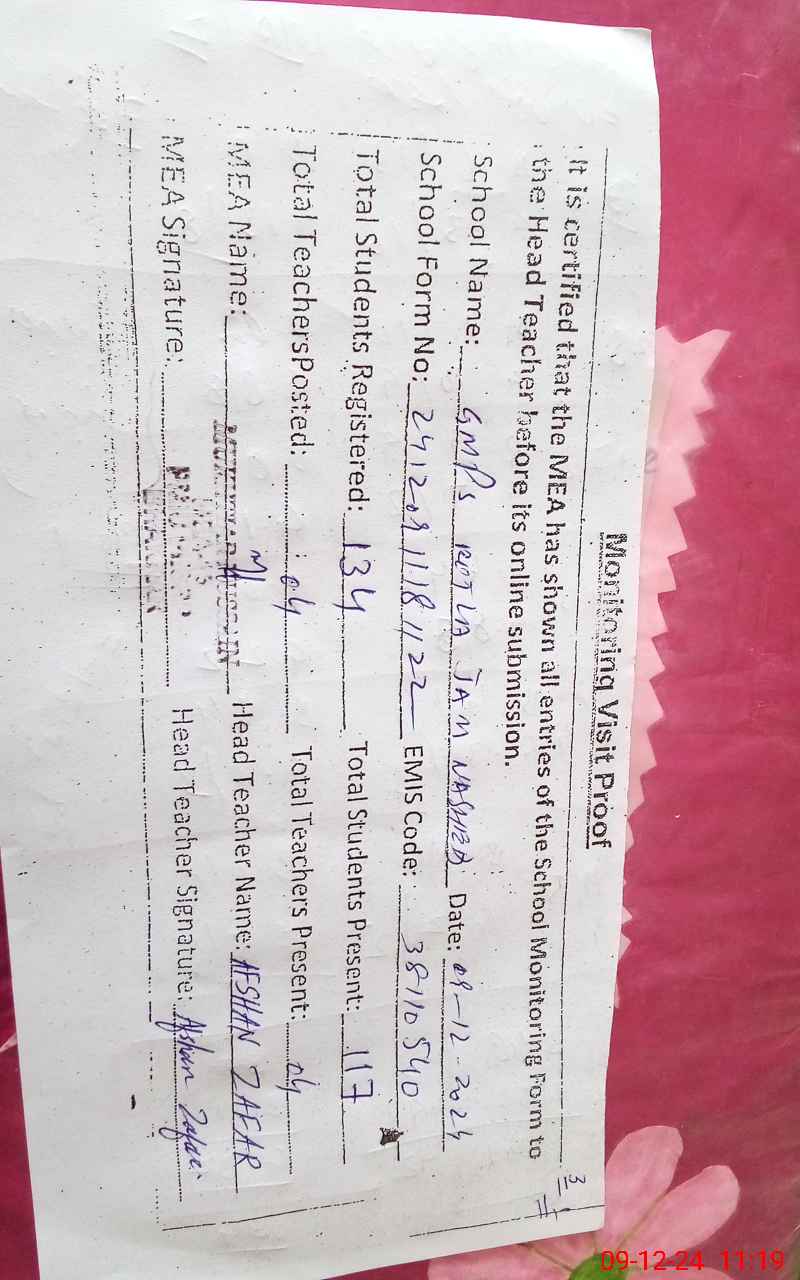 3
Monitoring Visit Proof
It is certified that the MEA has shown all entries of the School Monitoring Form to
the Head Teacher before its online submission.
School Name: GMPS KOTLA JAM NASHEB Date: 09-12-2024
School Form No: EMIS Code: 38110540
Total Students Registered: 134 Total Students Present: 117
Total TeachersPosted: 04 Total Teachers Present: 04
MEA Name: HUSSAIN Head Teacher Name: AFSHAN ZAFAR
MEA Signature: Head Teacher Signature: Afshan Zafar
09-12-24 11:19